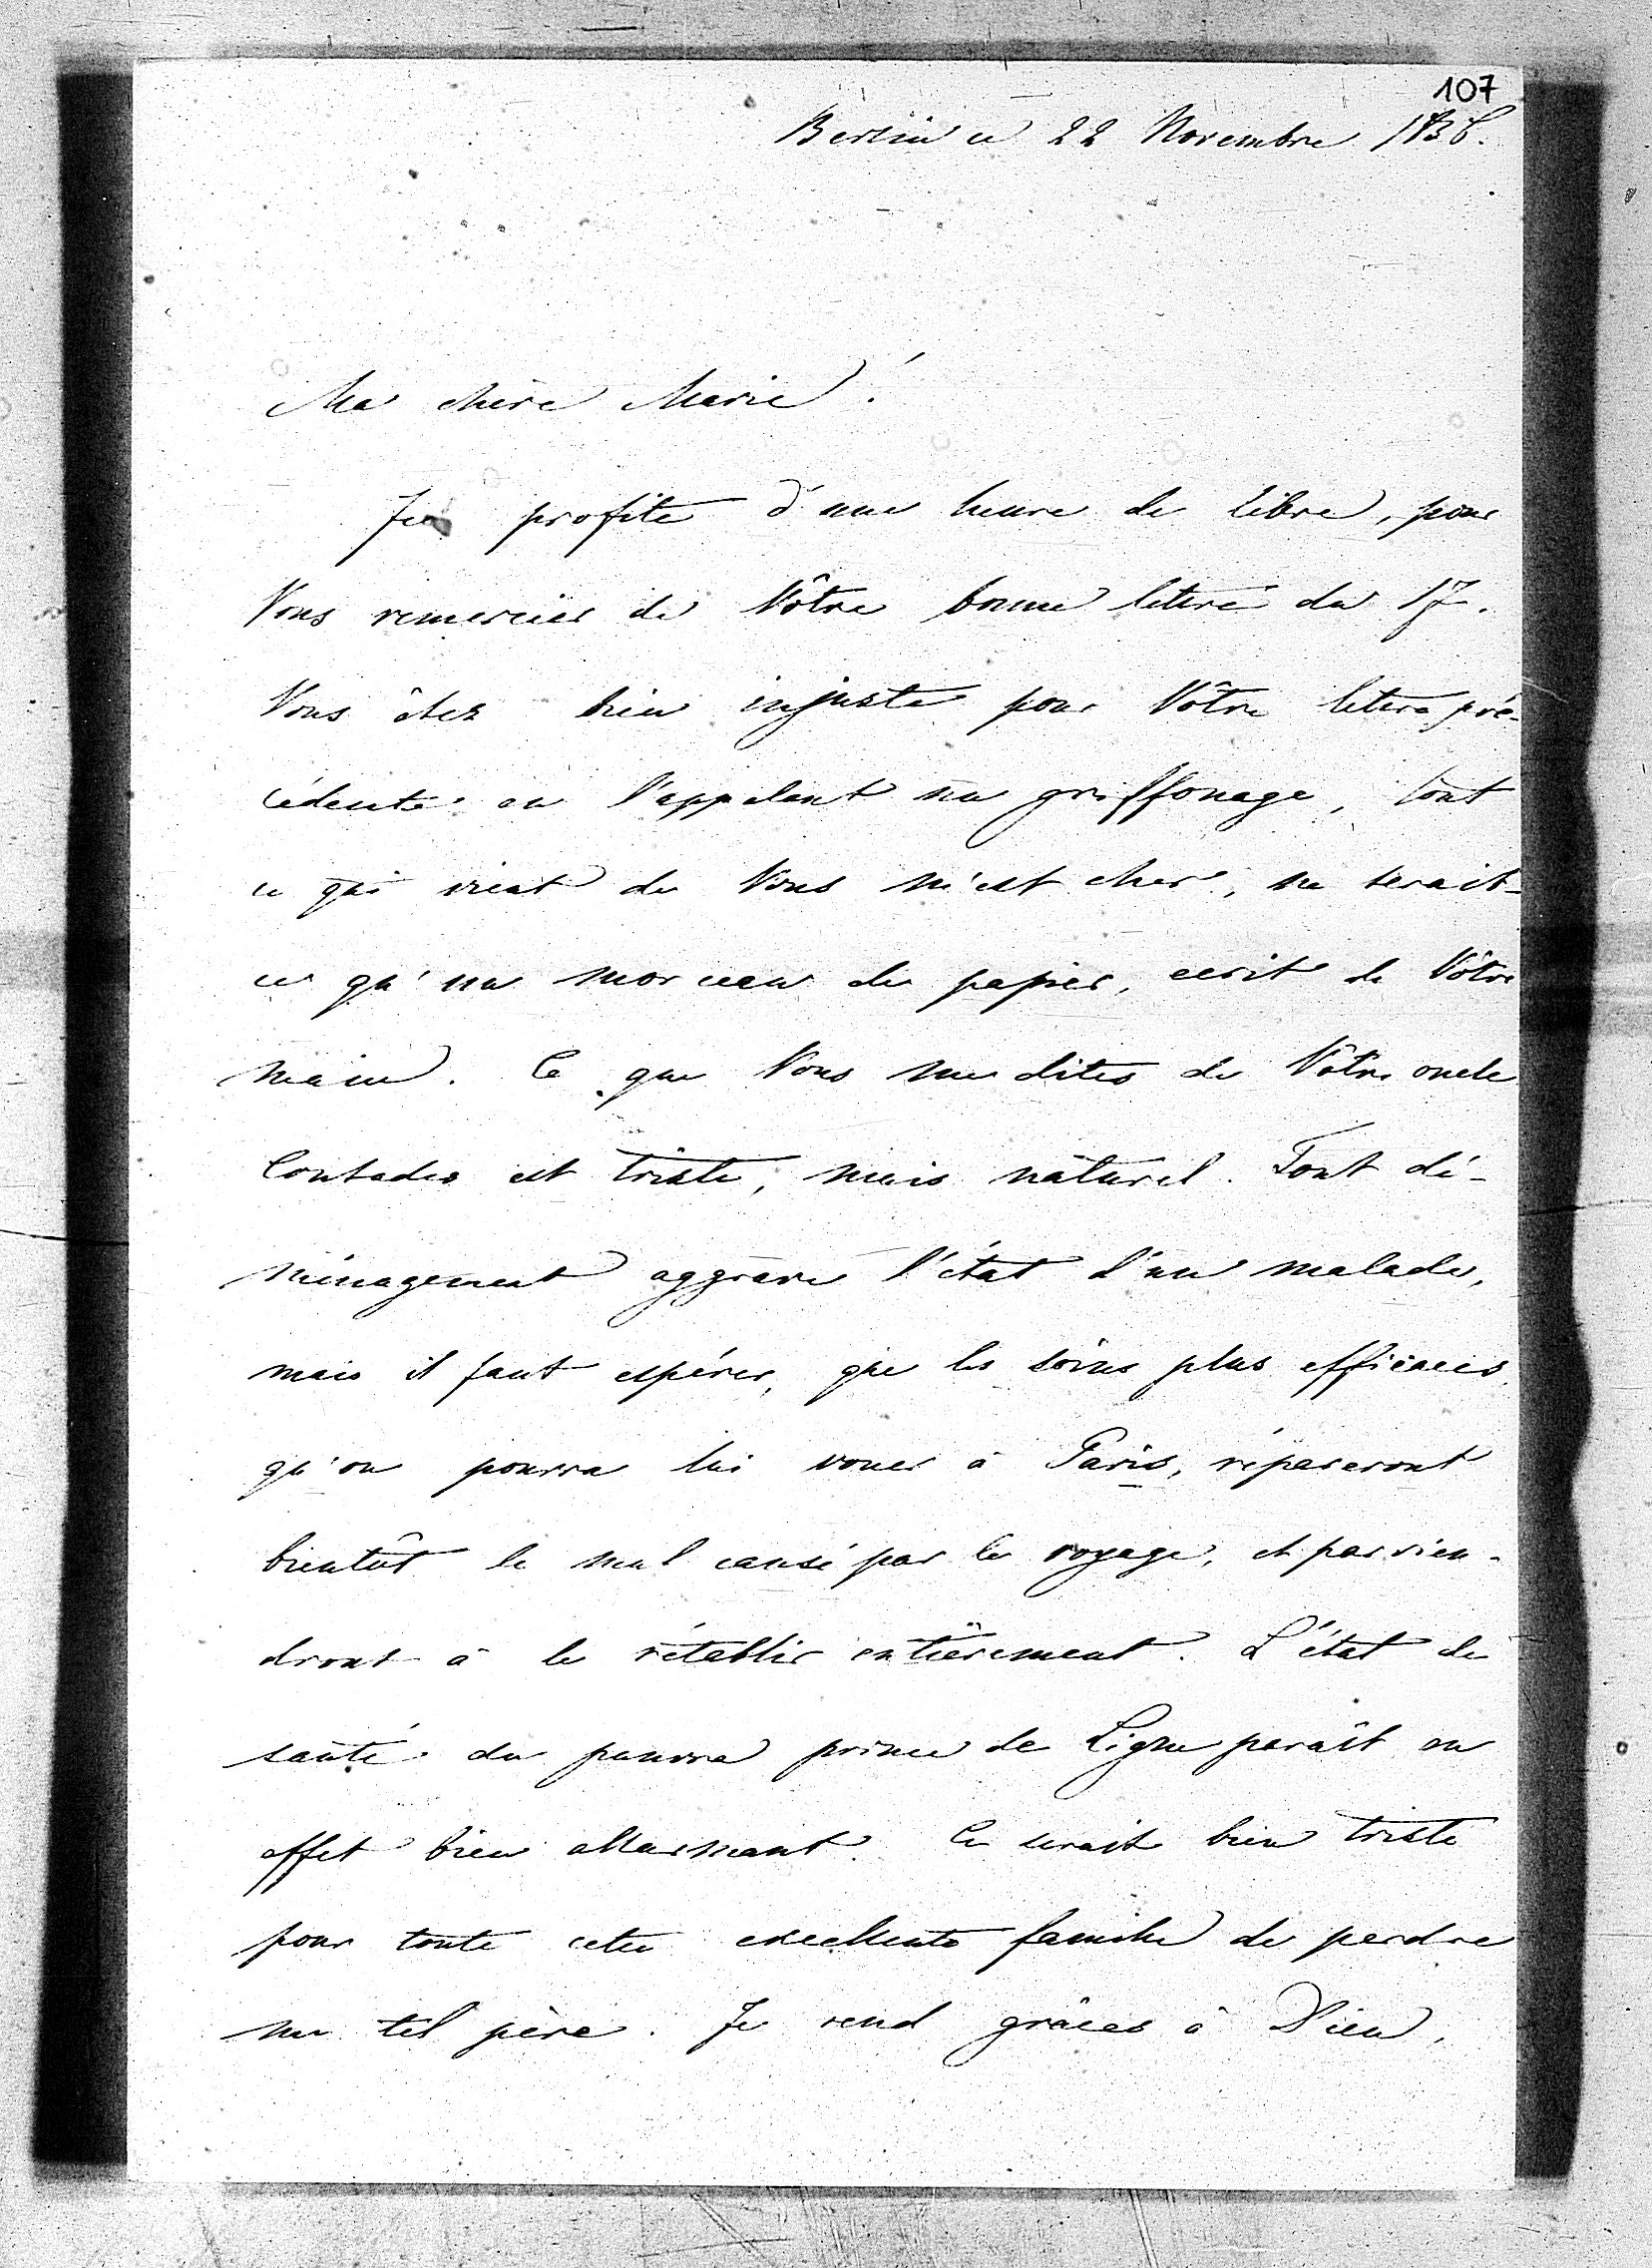 107
Berlin ce 22 Novembre 1856.
Ma chère Marie!
Je profite d'une heure de libre, pour
Vous remercier de Vôtre bonne lettre du 17.
Vous êtes bien injuste pour Vôtre lettre pré-
cédente en l'appelant un griffonage, tout
ce qui vient de Vous m'est cher, ne serait-
ce qu'un morceau de papier, ecrit de Vôtre
main. Ce que Vous me dites de Vôtre oncle
Contades est triste, mais naturel. Tout dé-
ménagement aggrave l'état d'un malade,
mais il faut espérer, que les soins plus efficaces,
qu'on pourra lui vouer à Paris, répareront
bientôt le mal causé par le voyage, et parvien-
dront à le rétablir entièrement. L'état de
santé du pauvre prince de Ligne paraît en
effet bien allarmant. Ce serait bien triste
pour toute cette excellente famille de perdre
un tel père. Je rend grâces à Dieu,